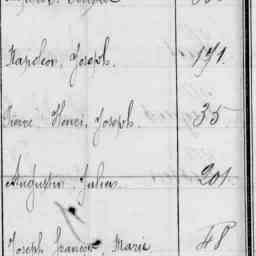 Napoleon, Joseph. 171.
Pierre Henri, Joseph. 35
Augustin Julien 201.
Joseph François, Marie 48